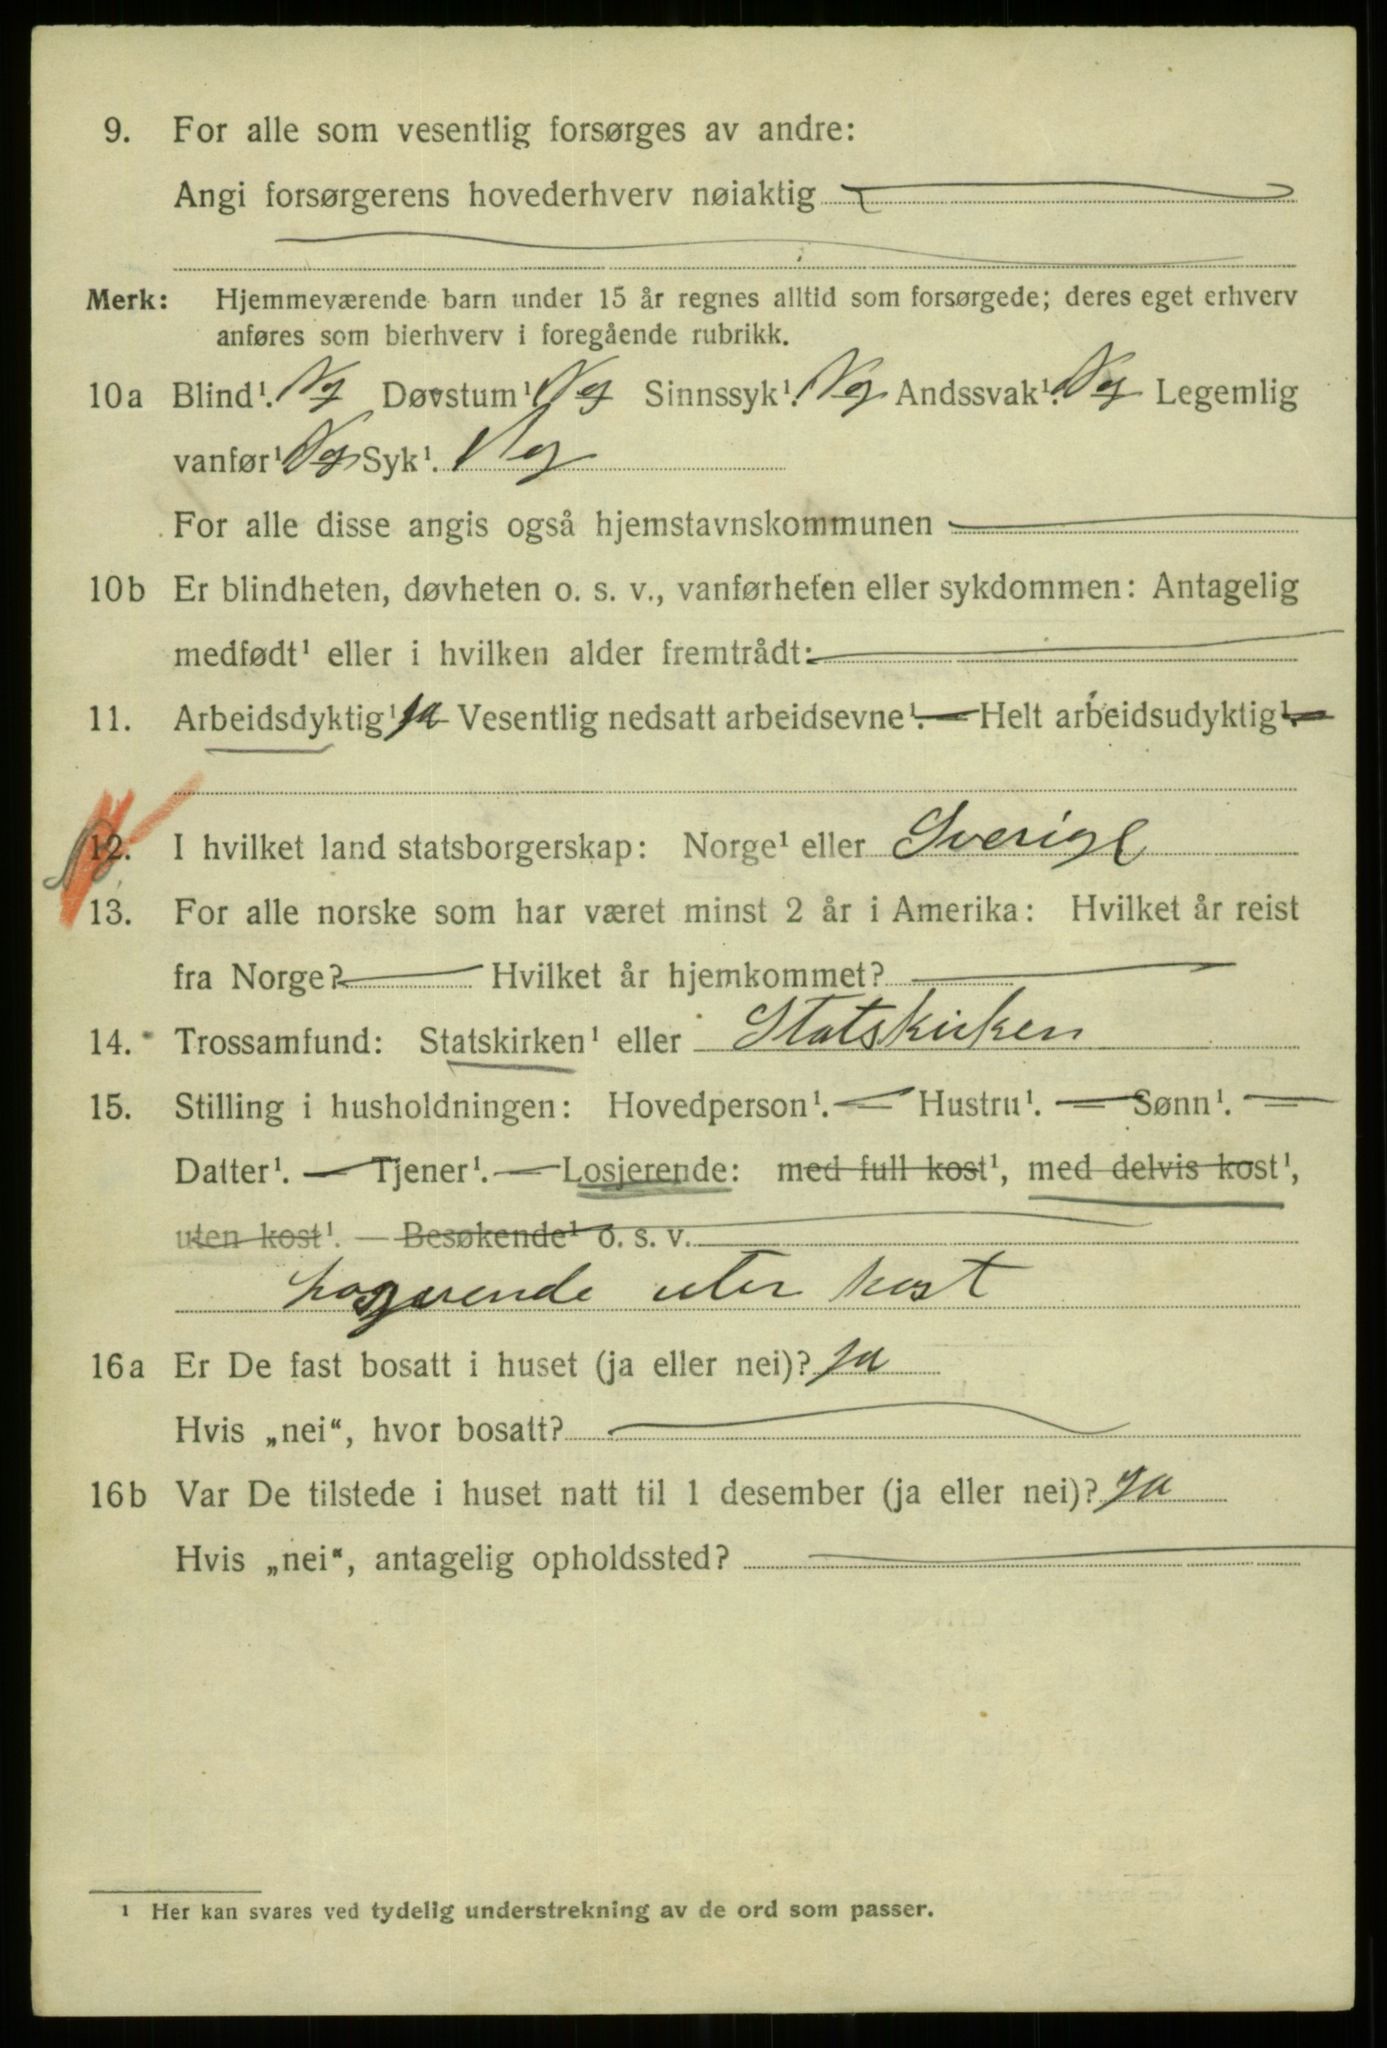 9. For alle som vesentlig forsørges av andre:
Angi forsørgerens hovederhverv nøiaktig
Merk: Hjemmeværende barn under 15 år regnes alltid som forsørgede; deres eget erhverv
anføres som bierhverv i foregående rubrikk.
10a Blind¹. Nej Døvstum¹ Nej Sinnssyk¹. Nej Andssvak¹. Nej Legemlig
vanfør¹ Nej Syk¹. Nej
For alle disse angis også hjemstavnskommunen
10b Er blindheten, døvheten o. s. v., vanførheten eller sykdommen: Antagelig
medfødt¹ eller i hvilken alder fremtrådt:
11. Arbeidsdyktig¹ Ja Vesentlig nedsatt arbeidsevne¹. — Helt arbeidsudyktig¹. —
12. I hvilket land statsborgerskap: Norge¹ eller Sverige
13. For alle norske som har været minst 2 år i Amerika: Hvilket år reist
fra Norge? Hvilket år hjemkommet?
14. Trossamfund: Statskirken¹ eller Statskirken
15. Stilling i husholdningen: Hovedperson¹. — Hustru¹. — Sønn¹. —
Datter¹. — Tjener¹. — Losjerende: med full kost¹, med delvis kost¹,
uten kost¹. — Besøkende¹ o. s. v.
Losjerende uten kost
16a Er De fast bosatt i huset (ja eller nei)? Ja
Hvis „nei“, hvor bosatt?
16b Var De tilstede i huset natt til 1 desember (ja eller nei)? Ja
Hvis „nei“, antagelig opholdssted?
¹ Her kan svares ved tydelig understrekning av de ord som passer.